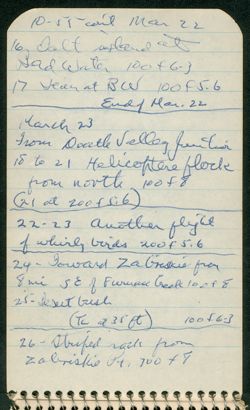 10-55 cont Mar 22
16, Salt
Bad Water 100 f 6-3
17 Same at BW 100 f 5.6
End of Mar. 22
March 23
From Death Valley Junction
18 to 21 Helicopters flock
from north 100 f 8
(21 at 200 f 5.6)
22-23 Another flight
of whirly birds 200 f 5.6
24- Toward Zabriskie from
8 mi SE of Furnace Creek 100 f 8
25- Desert bush
(Tel at 35 ft) 100 f 6-3
26- Striped rock from
Zabriskie Pt. 300 f 8